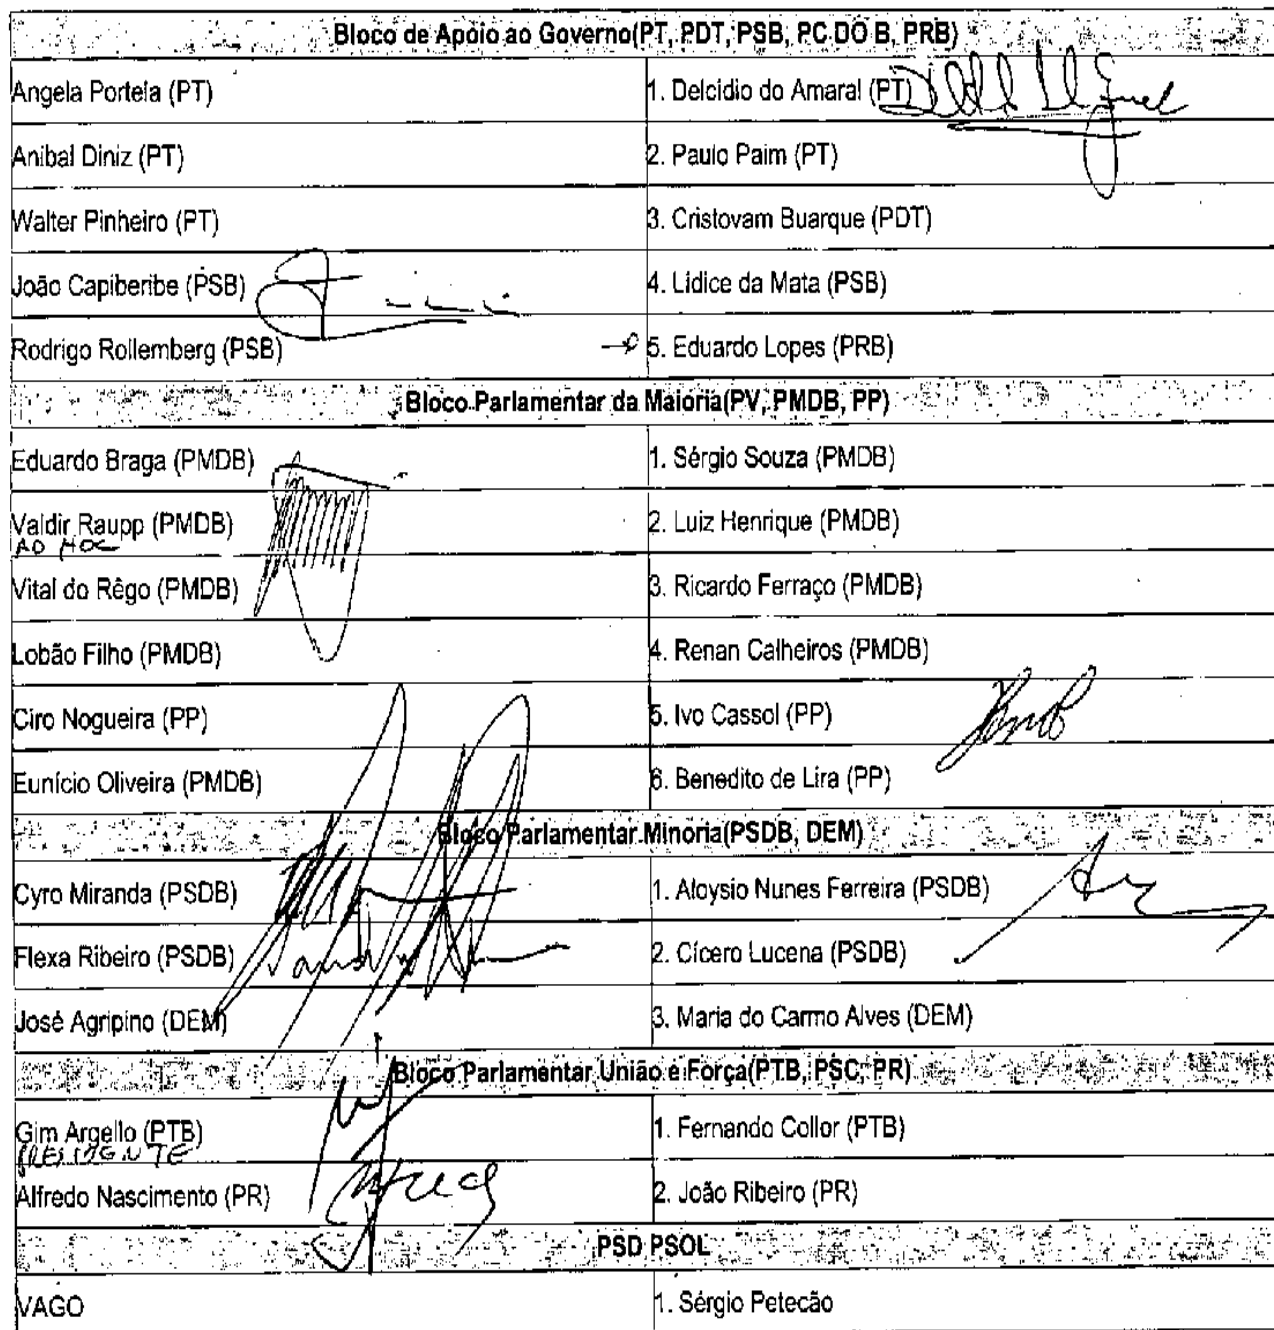 Bloco de Apoio ao Governo(PT, PDT, PSB, PC DO B, PRB)
Angela Portela (PT) 1. Delcídio do Amaral (PT)
Anibal Diniz (PT) 2. Paulo Paim (PT)
Walter Pinheiro (PT) 3. Cristovam Buarque (PDT)
João Capiberibe (PSB) 4. Lídice da Mata (PSB)
Rodrigo Rollemberg (PSB) 5. Eduardo Lopes (PRB)
Bloco Parlamentar da Maioria(PV, PMDB, PP)
Eduardo Braga (PMDB) 1. Sérgio Souza (PMDB)
Valdir Raupp (PMDB) 2. Luiz Henrique (PMDB)
AD HOC
Vital do Rêgo (PMDB) 3. Ricardo Ferraço (PMDB)
Lobão Filho (PMDB) 4. Renan Calheiros (PMDB)
Ciro Nogueira (PP) 5. Ivo Cassol (PP)
Eunício Oliveira (PMDB) 6. Benedito de Lira (PP)
Bloco Parlamentar Minoria(PSDB, DEM)
Cyro Miranda (PSDB) 1. Aloysio Nunes Ferreira (PSDB)
Flexa Ribeiro (PSDB) 2. Cícero Lucena (PSDB)
José Agripino (DEM) 3. Maria do Carmo Alves (DEM)
Bloco Parlamentar União e Força(PTB, PSC, PR)
Gim Argello (PTB) 1. Fernando Collor (PTB)
PRESIDENTE
Alfredo Nascimento (PR) 2. João Ribeiro (PR)
PSD PSOL
VAGO 1. Sérgio Petecão